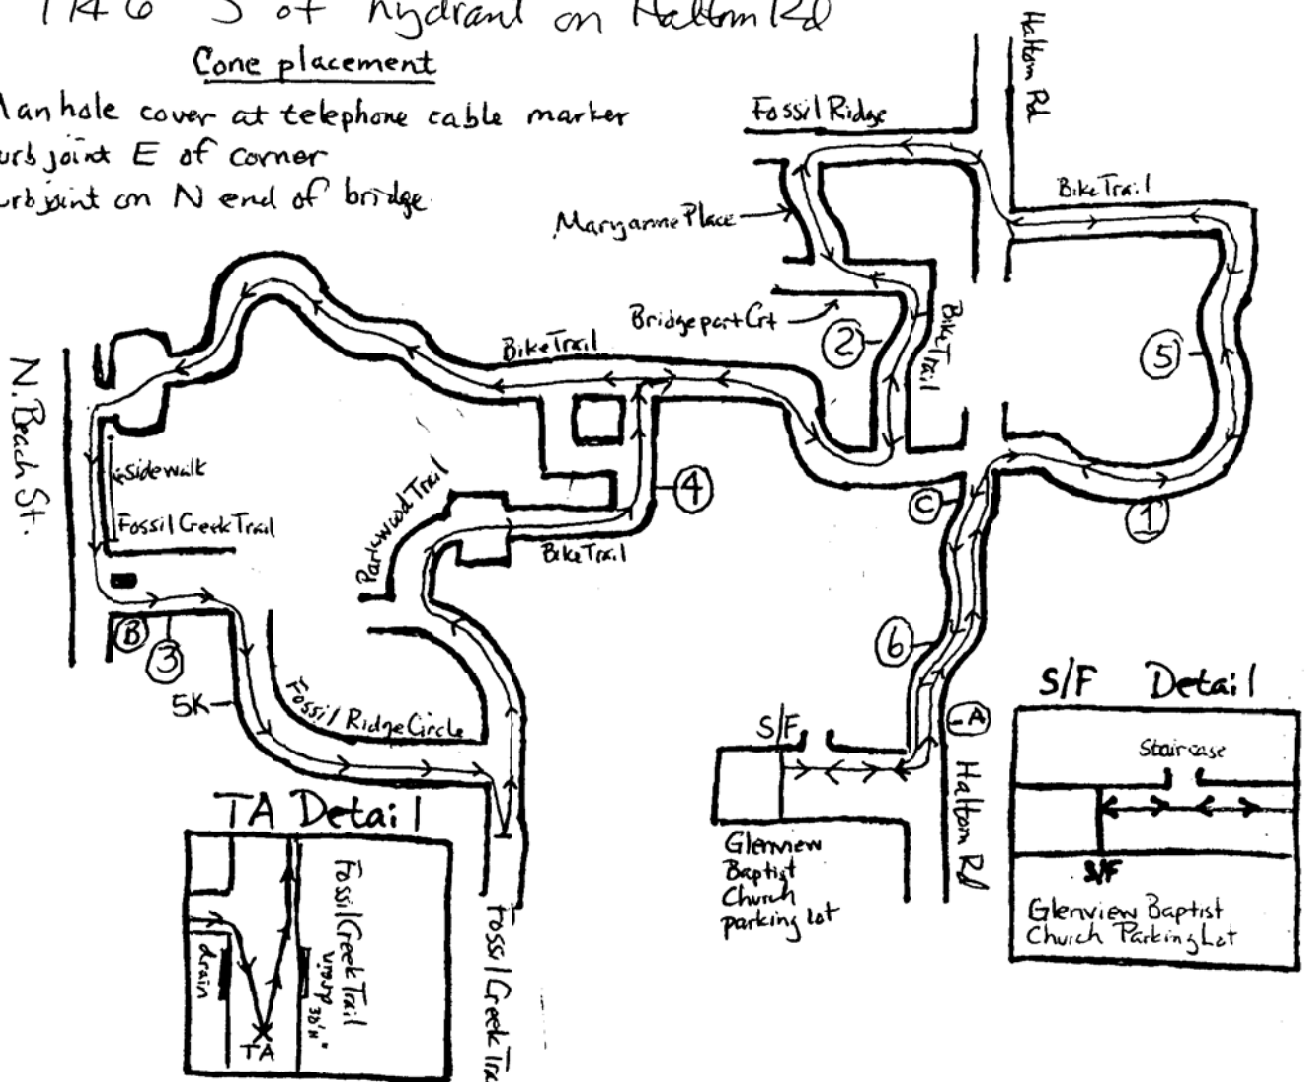 of hydrant on Haltom Rd
Cone placement
Manhole cover at telephone cable marker
curb joint E of corner
curb joint on N end of bridge
Haltom Rd
Fossil Ridge
Bike Trail
Maryanne Place
Bridgeport Crt
2
Bike Trail
5
Bike Trail
N. Beach St.
Sidewalk
Fossil Creek Trail
Parkwood Trail
4
Bike Trail
C
1
B
3
6
5K
Fossil Ridge Circle
S/F
A
Haltom Rd
Glenview
Baptist
Church
parking lot
S/F Detail
Staircase
S/F
Glenview Baptist
Church Parking Lot
TA Detail
Fossil Creek Trail
drain
drain
TA
Fossil Creek Tra